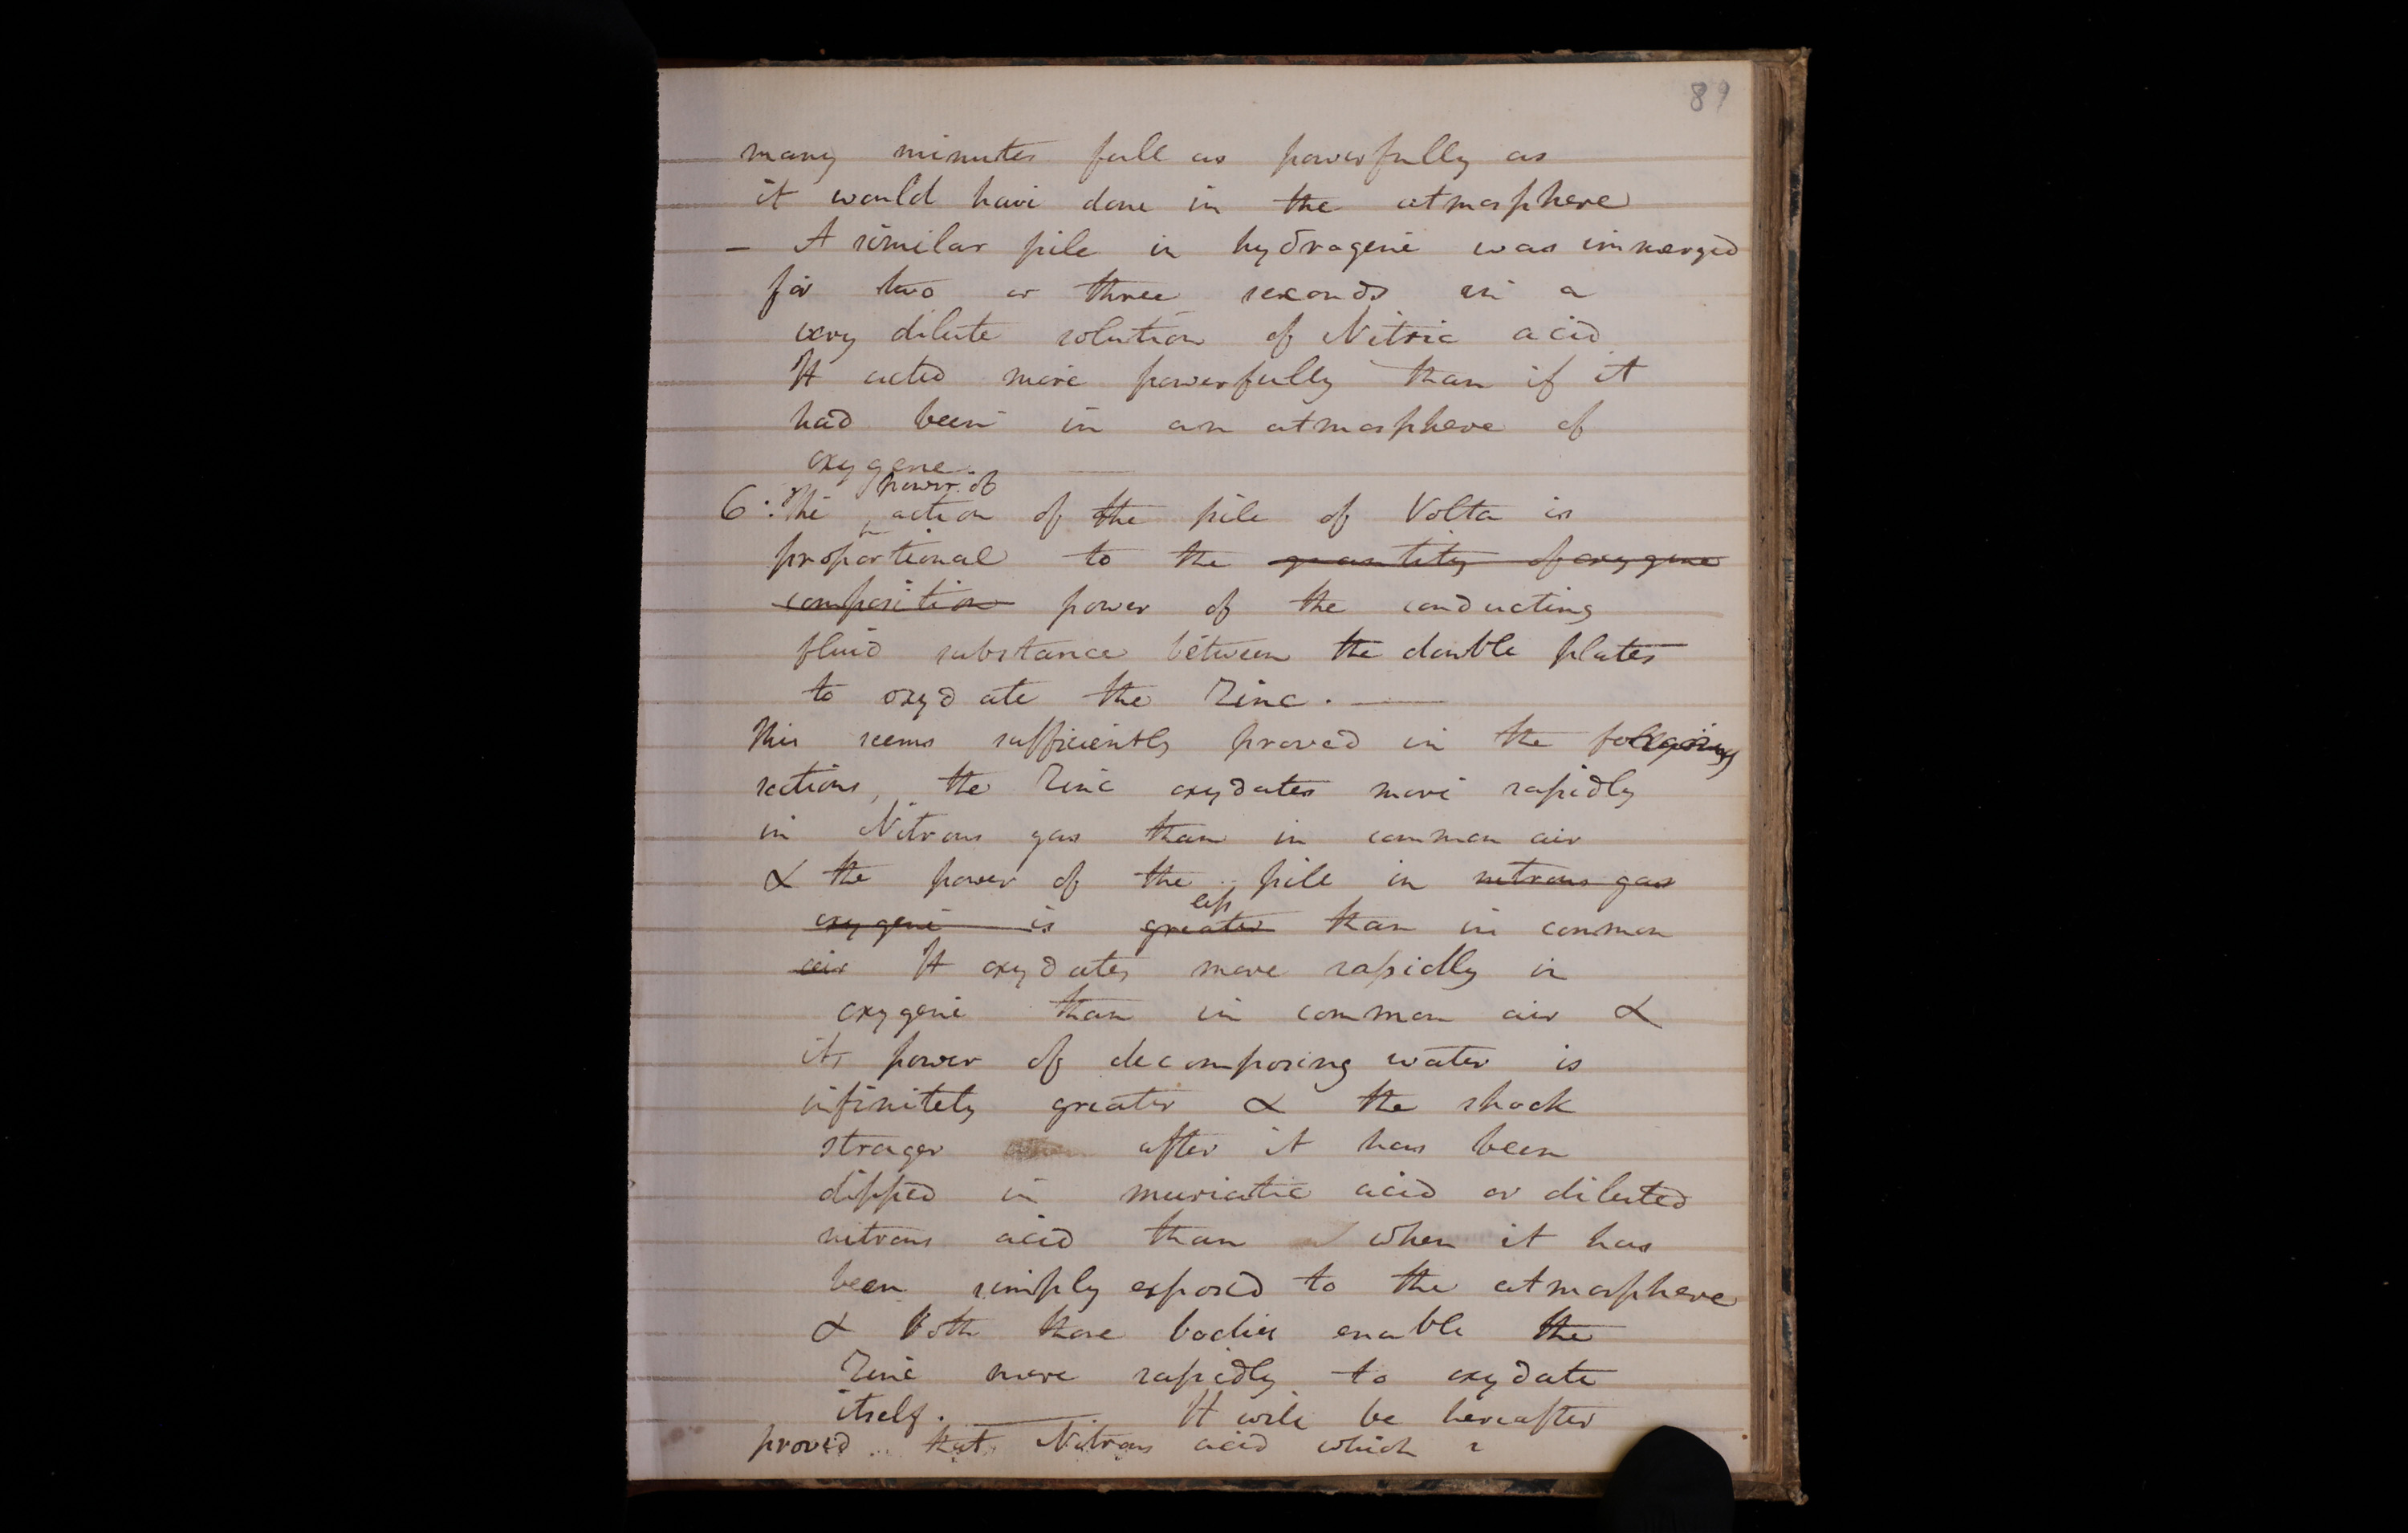 89
many minutes full as powerfully as
it would have done in the atmosphere
— A similar pile in hydrogene was immerged
for two or three seconds in a
very dilute solution of Nitric acid
It acted more powerfully than if it
had been in an atmosphere of
oxygene.
power of
6. The action of the pile of Volta is
proportional to the quantity of oxygene
composition power of the conducting
fluid substance between the double plates
to oxydate the Zinc. —
This seems sufficiently proved in the
sections, the Zinc oxydates more rapidly
in Nitrous gas than in common air
& the power of the pile in nitrous gas
less
oxygene is greater than in common
air It oxydates more rapidly in
oxygene than in common air &
its power of decomposing water is
infinitely greater & the shock
stroger after it has been
dipped in muriatic acid or diluted
nitrous acid than when it has
been simply exposed to the atmosphere
& both these bodies enable the
Zinc more rapidly to oxydate
itself. — It will be hereafter
proved that Nitrous acid which